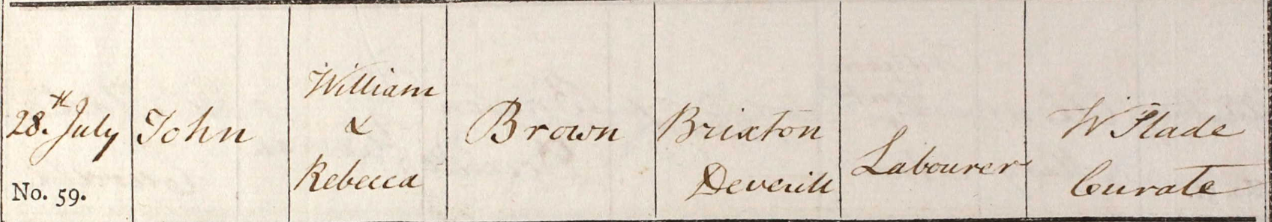 28.th July
No. 59.
John
William
&
Rebecca
Brown
Brixton
Deverill
Labourer
W Slade
Curate